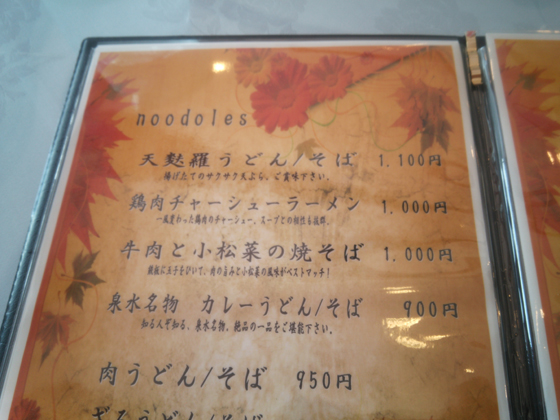 noodoles
天麩羅うどん/そば 1,100円
揚げたてのサクサク天ぷら、ご賞味下さい。
鶏肉チャーシューラーメン 1,000円
一風変わった鶏肉のチャーシュー、スープとの相性も抜群。
牛肉と小松菜の焼そば 1,000円
鉄板に玉子をひいて、肉の旨みと小松菜の風味がベストマッチ!
泉水名物 カレーうどん/そば 900円
知る人ぞ知る、泉水名物。絶品の一品をご堪能下さい。
肉うどん/そば 950円
ざるうどん/そば